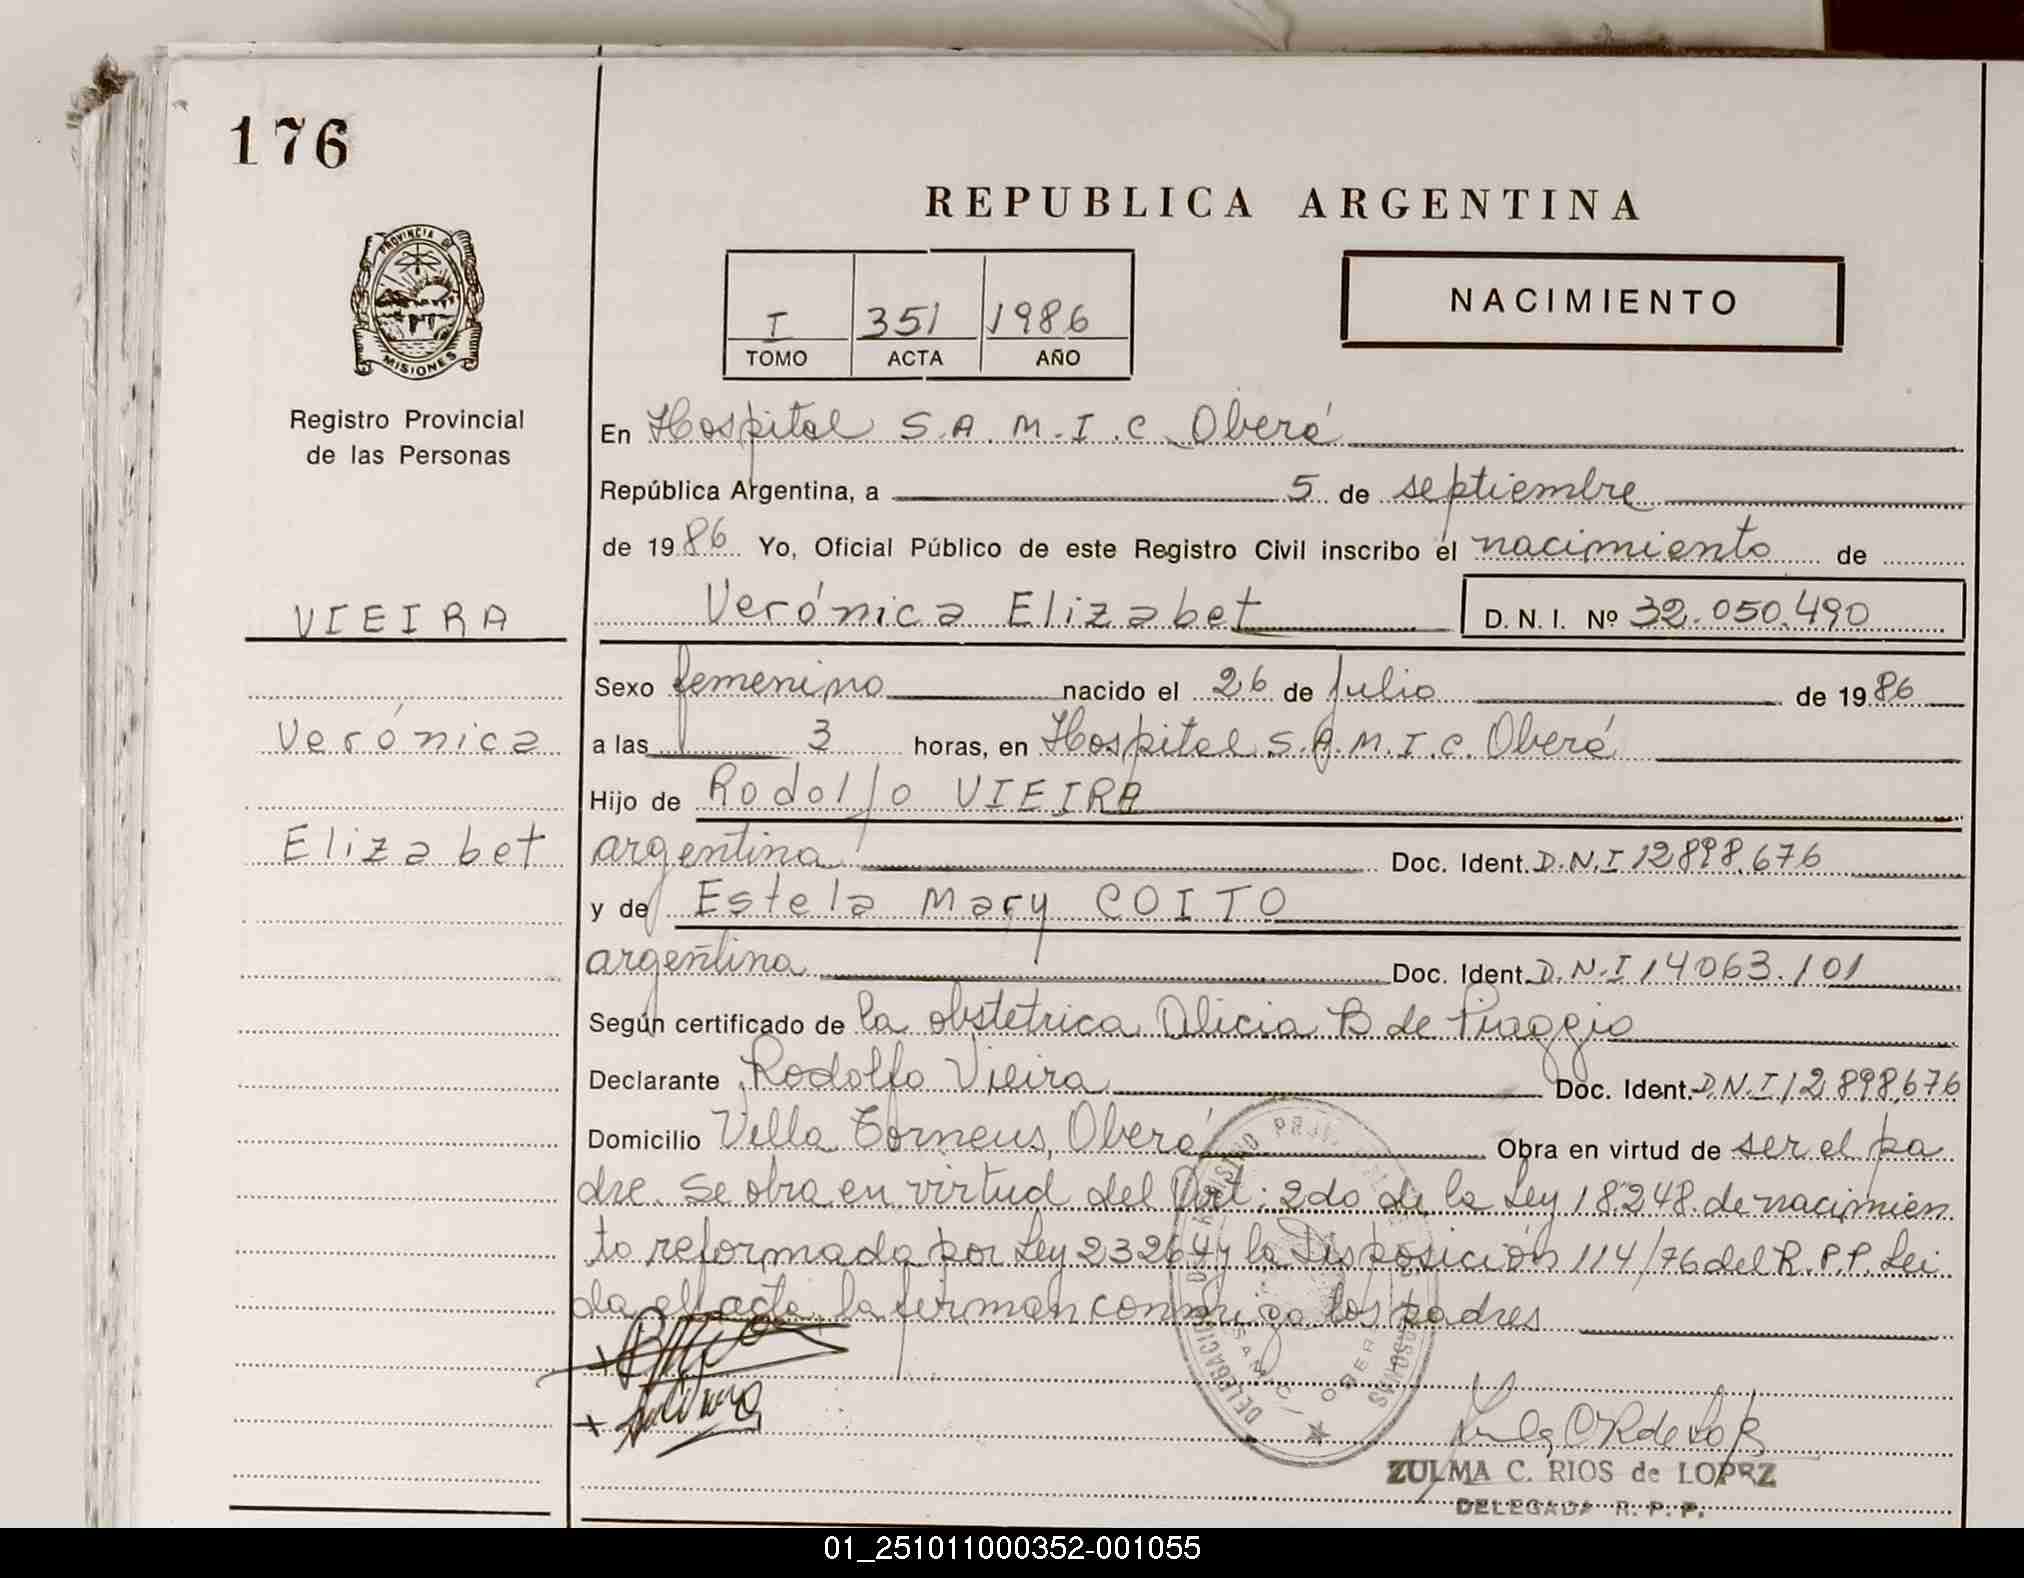 176
REPUBLICA ARGENTINA
PROVINCIA DE
MISIONES
I 351 1986
TOMO ACTA AÑO
NACIMIENTO
Registro Provincial
de las Personas
En Hospital S.A.M.I.C. Oberá
República Argentina, a 5 de septiembre
de 1986 Yo, Oficial Público de este Registro Civil inscribo el nacimiento de
VIEIRA
Verónica Elizabet D.N.I. Nº 32.050.490
Sexo femenino nacido el 26 de Julio de 1986
Verónica
a las 3 horas, en Hospital S.A.M.I.C. Oberá
Hijo de Rodolfo VIEIRA
Elizabet
argentina Doc. Ident. D.N.I 12898.676
y de Estela Mary COITO
argentina Doc. Ident. D.N.I 14063.101
Según certificado de la obstetrica Alicia B de Piaggio
Declarante Rodolfo Vieira Doc. Ident. D.N.I 12898.676
Domicilio Villa Torneus, Oberá Obra en virtud de ser el pa
dre. Se obra en virtud del Art: 2do de la Ley 18.248 de nacimien
to reformada por Ley 23264 y la Disposición 114/76 del R.P.P. Lei
da el acta, la firman conmigo los padres
ZULMA C. RIOS de LOPEZ
DELEGADA R. P. P.
01_251011000352-001055